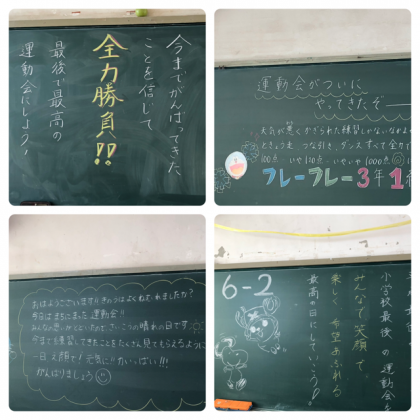 今までがんばってきた
ことを信じて
全力勝負!!
最後で最高の
運動会にしよう!
運動会がついに
やってきたぞー
天気が悪く
つな引き、ダンス すべて全力
100点…いや120点…いやいや1000点
フレーフレー3年1組
おはようございます!!きのうはよくねむれましたか?
今日はまちにまった運動会!!
さいこうの晴れの日です
今までも練習してきたことをたくさん見てもらえるように
一日え顔で!元気に!!かいっぱい!!!
がんばりましょう
6-2
小学校最後の運動会を
みんなで笑顔で
楽しく希望あふれる
最高の日にしていこう!